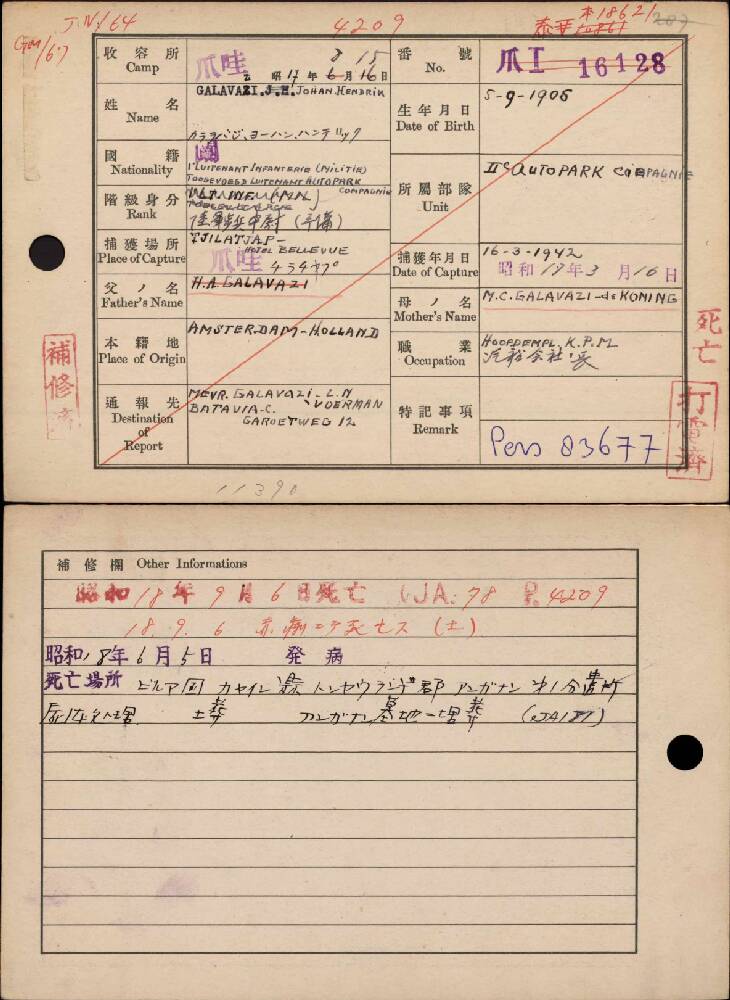 J.N/64
4209
泰 本18621
207
収容所
Camp
爪哇
8 15
昭17年6月16日
番號
No.
爪I 16128
姓名
Name
GALAVAZI.J.H. JOHAN HENDRIK
ガラバジ、ヨーハン、ハンデリック
生年月日
Date of Birth
5-9-1908
國籍
Nationality
蘭
1e LUITENANT INFANTERIE (MILITIE)
TOEGEVOEGD LUITENANT AUTOPARK
COMPAGNIE
階級身分
Rank
陸軍歩兵中尉
所屬部隊
Unit
IIe AUTOPARK COMPAGNIE
捕獲場所
Place of Capture
TJILATJAP-
HOTEL BELLEVUE
爪哇
チラチヤプ
捕獲年月日
Date of Capture
16-3-1942
昭和17年3月16日
父ノ名
Father's Name
H.A. GALAVAZI
母ノ名
Mother's Name
M.C. GALAVAZI-de KONING
本籍地
Place of Origin
AMSTERDAM-HOLLAND
職業
Occupation
HOOFDEMPL. K.P.M.
汽船会社 長
通報先
Destination of Report
MEVR. GALAVAZI - L.N
VOERMAN
BATAVIA-C.
GAROETWEG 12
特記事項
Remark
Pers 83677
補修済
死亡
打電済
11390
補修欄 Other Informations
昭和18年9月6日死亡 (JA:78 4209
18.9.6 赤痢ニテ死亡ス (土)
昭和18年6月5日 発病
死亡場所 ビルマ国 県 郡 アンガナン 第1分遣所
死体処理 土葬 アンガナン墓地ニ埋葬 (JA187)